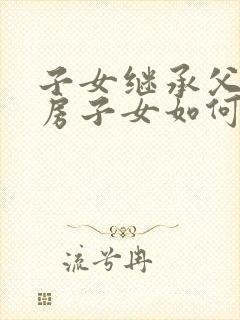 子女继承父
房子女如何
流兮冉